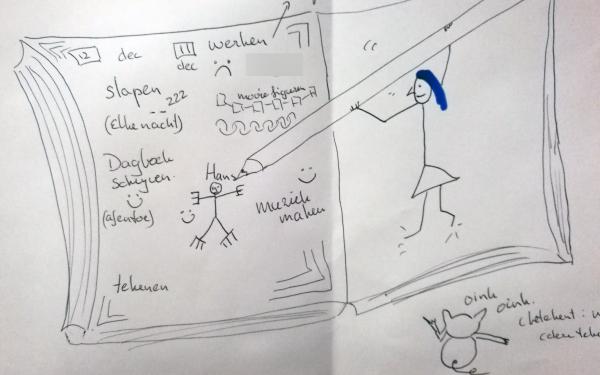 12 dec
11 dec
werken
slapen zzz
(Elke nacht)
mooie figuren
Dagboek
schrijven
(af en toe)
Hans
muziek
maken
tekenen
oink
oink.